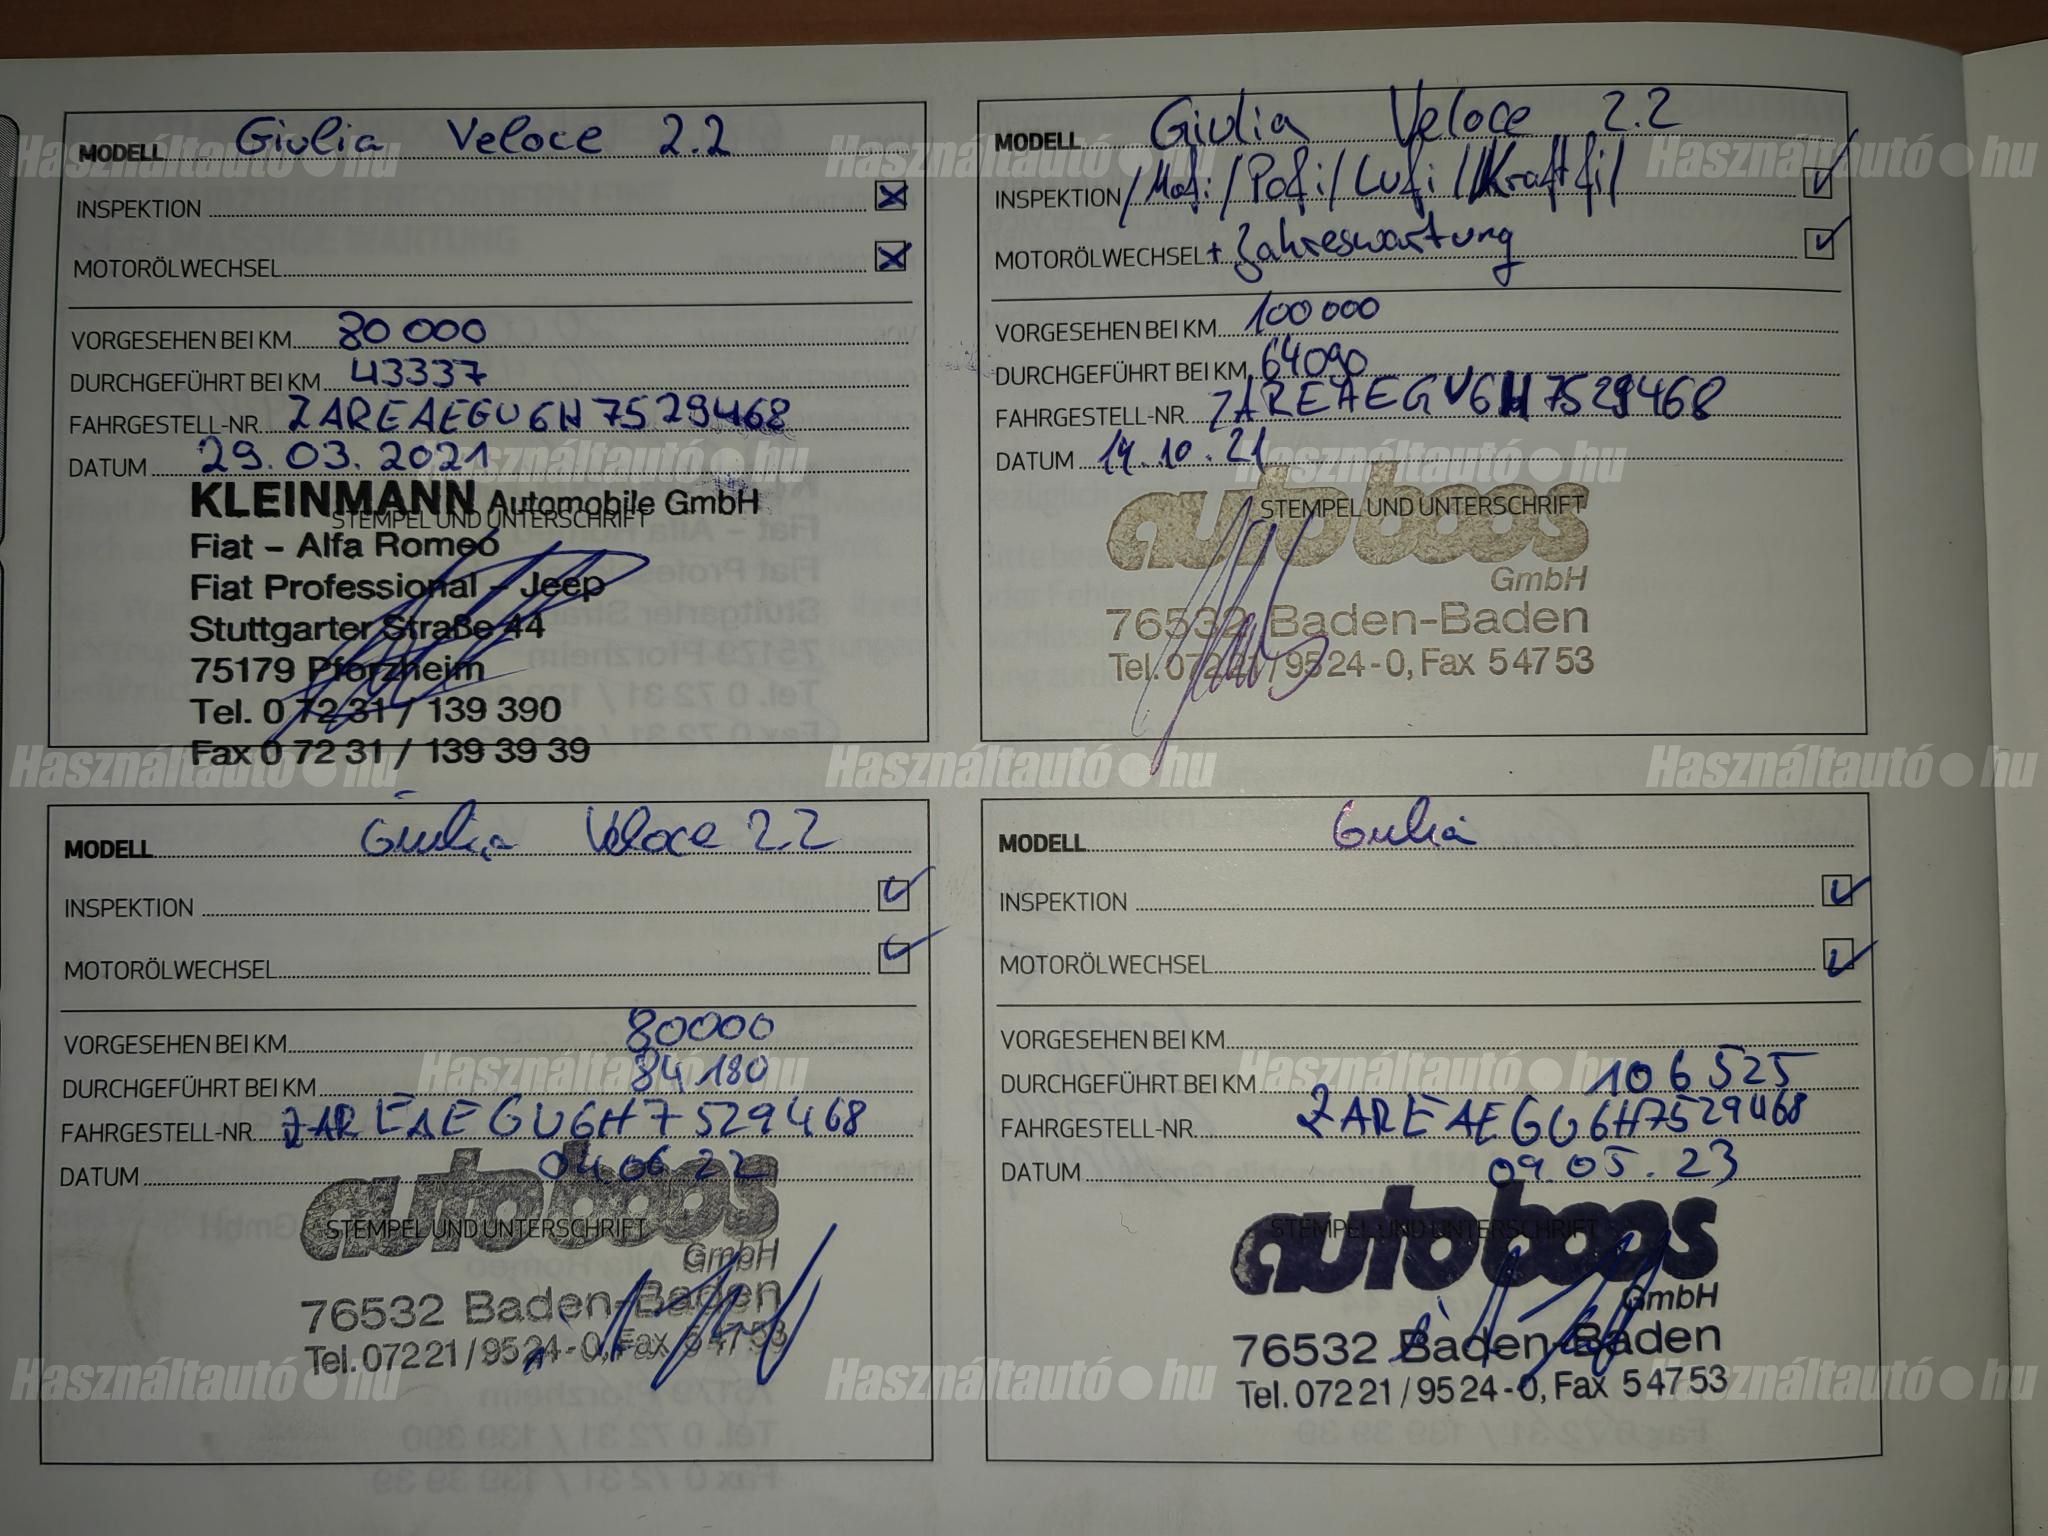 MODELL Giulia Veloce 2.2
INSPEKTION
MOTORÖLWECHSEL
VORGESEHEN BEI KM 80 000
DURCHGEFÜHRT BEI KM 43337
FAHRGESTELL-NR. ZAREAEGU6H7529468
DATUM 29.03.2021
KLEINMANN Automobile GmbH
STEMPEL UND UNTERSCHRIFT
Fiat - Alfa Romeo
Fiat Professional - Jeep
Stuttgarter Straße 44
75179 Pforzheim
Tel. 0 72 31 / 139 390
Fax 0 72 31 / 139 39 39
MODELL Giulia Veloce 2.2
INSPEKTION /Mofi/Pofi/Lufi/Kraftfi/
MOTORÖLWECHSEL + Jahreswartung
VORGESEHEN BEI KM 100 000
DURCHGEFÜHRT BEI KM 64090
FAHRGESTELL-NR. ZAREAEGU6H7529468
DATUM 14.10.21
auto boos
STEMPEL UND UNTERSCHRIFT
GmbH
76532 Baden-Baden
Tel. 07221/9524-0, Fax 54753
MODELL Giulia Veloce 2.2
INSPEKTION
MOTORÖLWECHSEL
VORGESEHEN BEI KM 80000
DURCHGEFÜHRT BEI KM 84180
FAHRGESTELL-NR. ZAREAEGU6H7529468
DATUM 04.06.22
auto boos
STEMPEL UND UNTERSCHRIFT
GmbH
76532 Baden-Baden
Tel. 07221/9524-0, Fax 54753
MODELL Giulia
INSPEKTION
MOTORÖLWECHSEL
VORGESEHEN BEI KM
DURCHGEFÜHRT BEI KM 106525
FAHRGESTELL-NR. ZAREAEGU6H7529468
DATUM 09.05.23
auto boos
STEMPEL UND UNTERSCHRIFT
GmbH
76532 Baden-Baden
Tel. 07221/9524-0, Fax 54753
Használtautó.hu